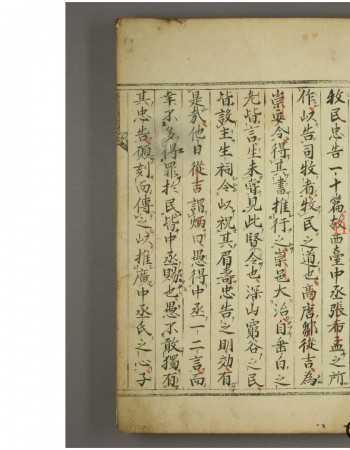 牧民忠告一十篇故西臺中丞張希孟之所
作以告司牧者牧民之道也高唐鄒從吉為
崇安令得其書推行之崇邑大治自垂白之
老皆言生未嘗見此賢令也深山窮谷之民
皆設主生祠令以祝其眉壽忠告之明效有
是哉他日從吉謂煥曰愚得中丞一二言而
幸不多得罪於民皆中丞賜也愚不敢獨有
其忠告願刻而傳之以推廣中丞氏之心子